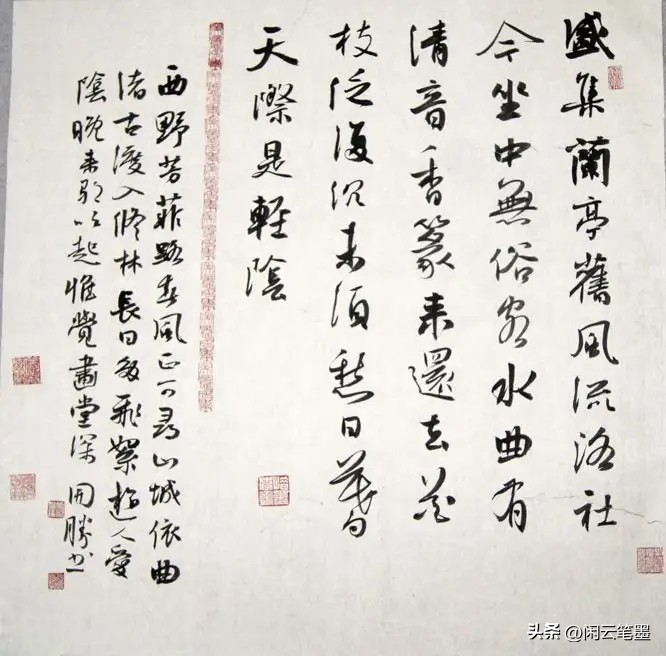 盛集蘭亭舊風流洛社
今坐中無俗客水曲有
清音香篆来還去花
枝泛復沉未須愁日暮
天際是輕陰
西野芳菲路春風正可尋山城依曲
渚古渡入脩林長日多飛絮遊人愛
陰晚来歌吹起惟覺畫堂深 開勝书
头条 @闲云笔墨